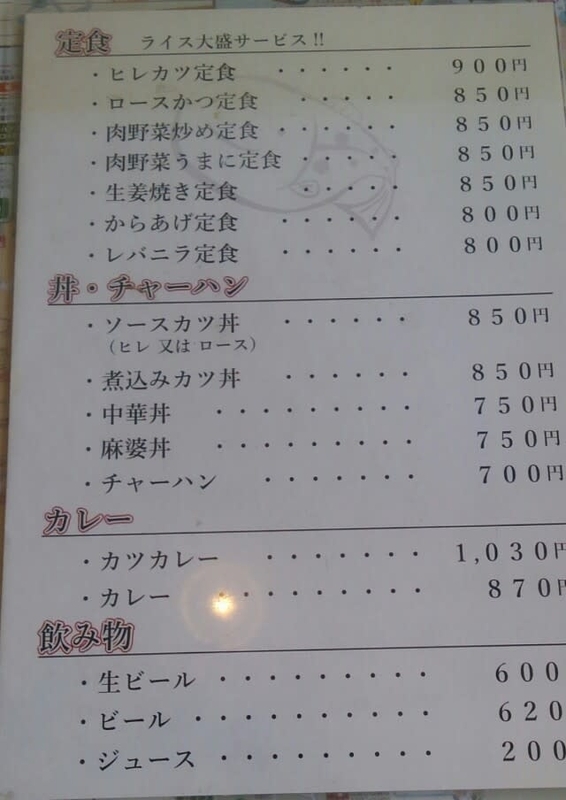 定食 ライス大盛サービス!!
・ヒレカツ定食 ・・・・・・ 900円
・ロースかつ定食 ・・・・・ 850円
・肉野菜炒め定食 ・・・・・・ 850円
・肉野菜うまに定食 ・・・・・ 850円
・生姜焼き定食 ・・・・・ 850円
・からあげ定食 ・・・・・・ 800円
・レバニラ定食 ・・・・・・ 800円
丼・チャーハン
・ソースカツ丼 ・・・・・・ 850円
(ヒレ 又は ロース)
・煮込みカツ丼 ・・・・・・ 850円
・中華丼 ・・・・・・・・・ 750円
・麻婆丼 ・・・・・・・・・ 750円
・チャーハン ・・・・・・・ 700円
カレー
・カツカレー ・・・・・・・ 1,030円
・カレー ・・・・・・・・・ 870円
飲み物
・生ビール ・・・・・・・・・ 600
・ビール ・・・・・・・・・・ 620
・ジュース ・・・・・・・・・ 200